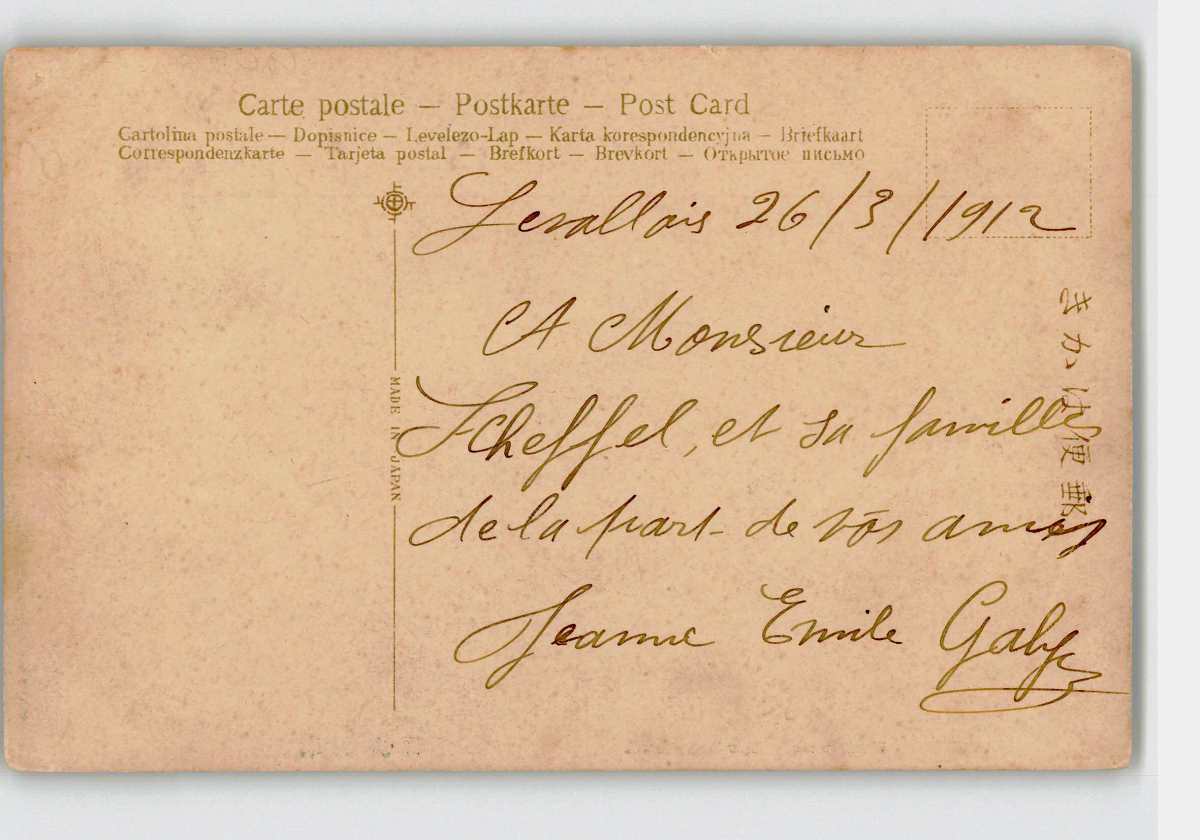 Carte postale — Postkarte — Post Card
Cartolina postale — Dopisnice — Levelezo-Lap — Karta korespondencyjna — Briefkaart
Correspondenzkarte — Tarjeta postal — Brefkort — Brevkort — Открытое письмо
Levallois 26/3/1912
A Monsieur
Scheffel, et sa famille
de la part de vos amis
Jeanne Emile Gaby
MADE IN JAPAN
きかは便郵